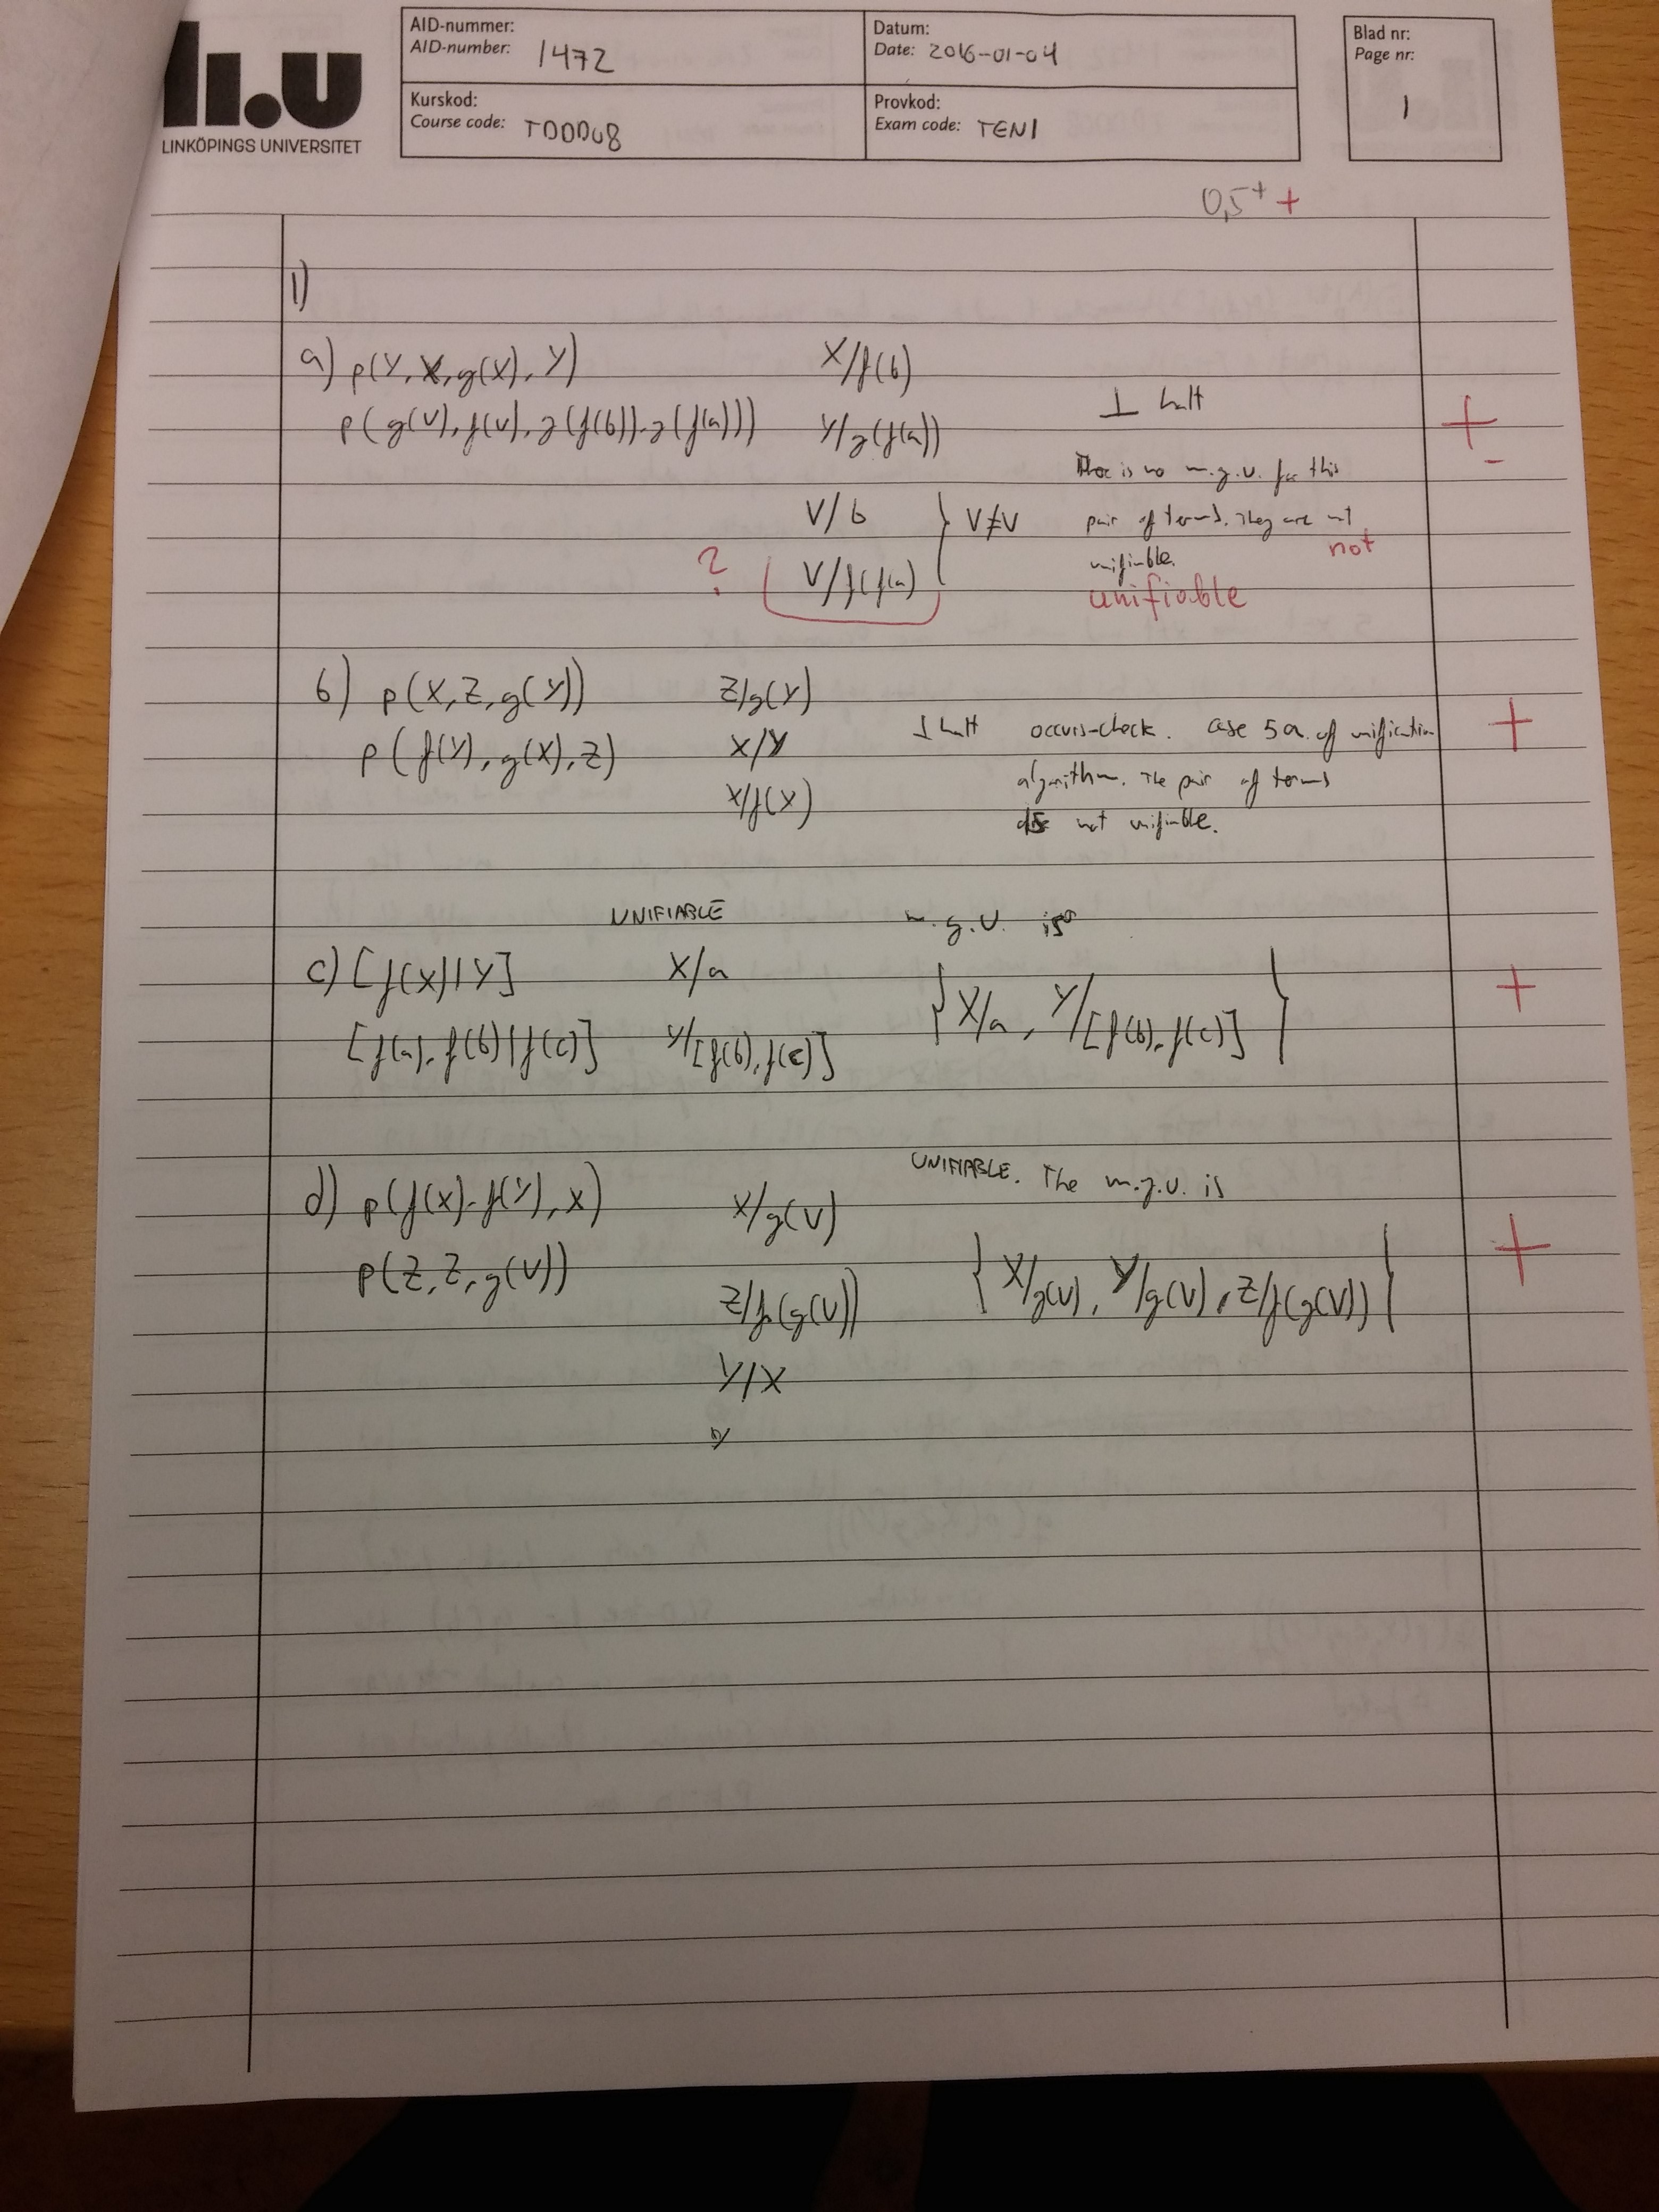 li.u
LINKÖPINGS UNIVERSITET
AID-nummer:
AID-number: 1472
Datum:
Date: 2016-01-04
Kurskod:
Course code: TDDD08
Provkod:
Exam code: TEN1
Blad nr:
Page nr:
1
0,5+ +
1)
a) p(Y, X, g(X), Y) X/f(b)
p(g(V), f(V), g(f(b)), g(f(a))) Y/g(f(a))
⊥ halt
+
-
There is no m.g.u. for this
V/b } V≠V pair of terms. They are not
not
? V/f(f(a) unifiable.
unifiable
b) p(X, Z, g(Y)) Z/g(Y)
p(f(Y), g(X), Z) X/Y ⊥ halt occurs-check. case 5a. of unification +
X/f(X) algorithm. The pair of terms
is not unifiable.
UNIFIABLE m.g.u. is
c) [f(X)|Y] X/a {X/a, Y/[f(b), f(c)]} +
[f(a), f(b)|f(c)] Y/[f(b), f(c)]
UNIFIABLE. The m.g.u. is
d) p(f(X), f(Y), X) X/g(V)
p(Z, Z, g(V)) {X/g(V), Y/g(V), Z/f(g(V))} +
Z/f(g(V))
Y/X